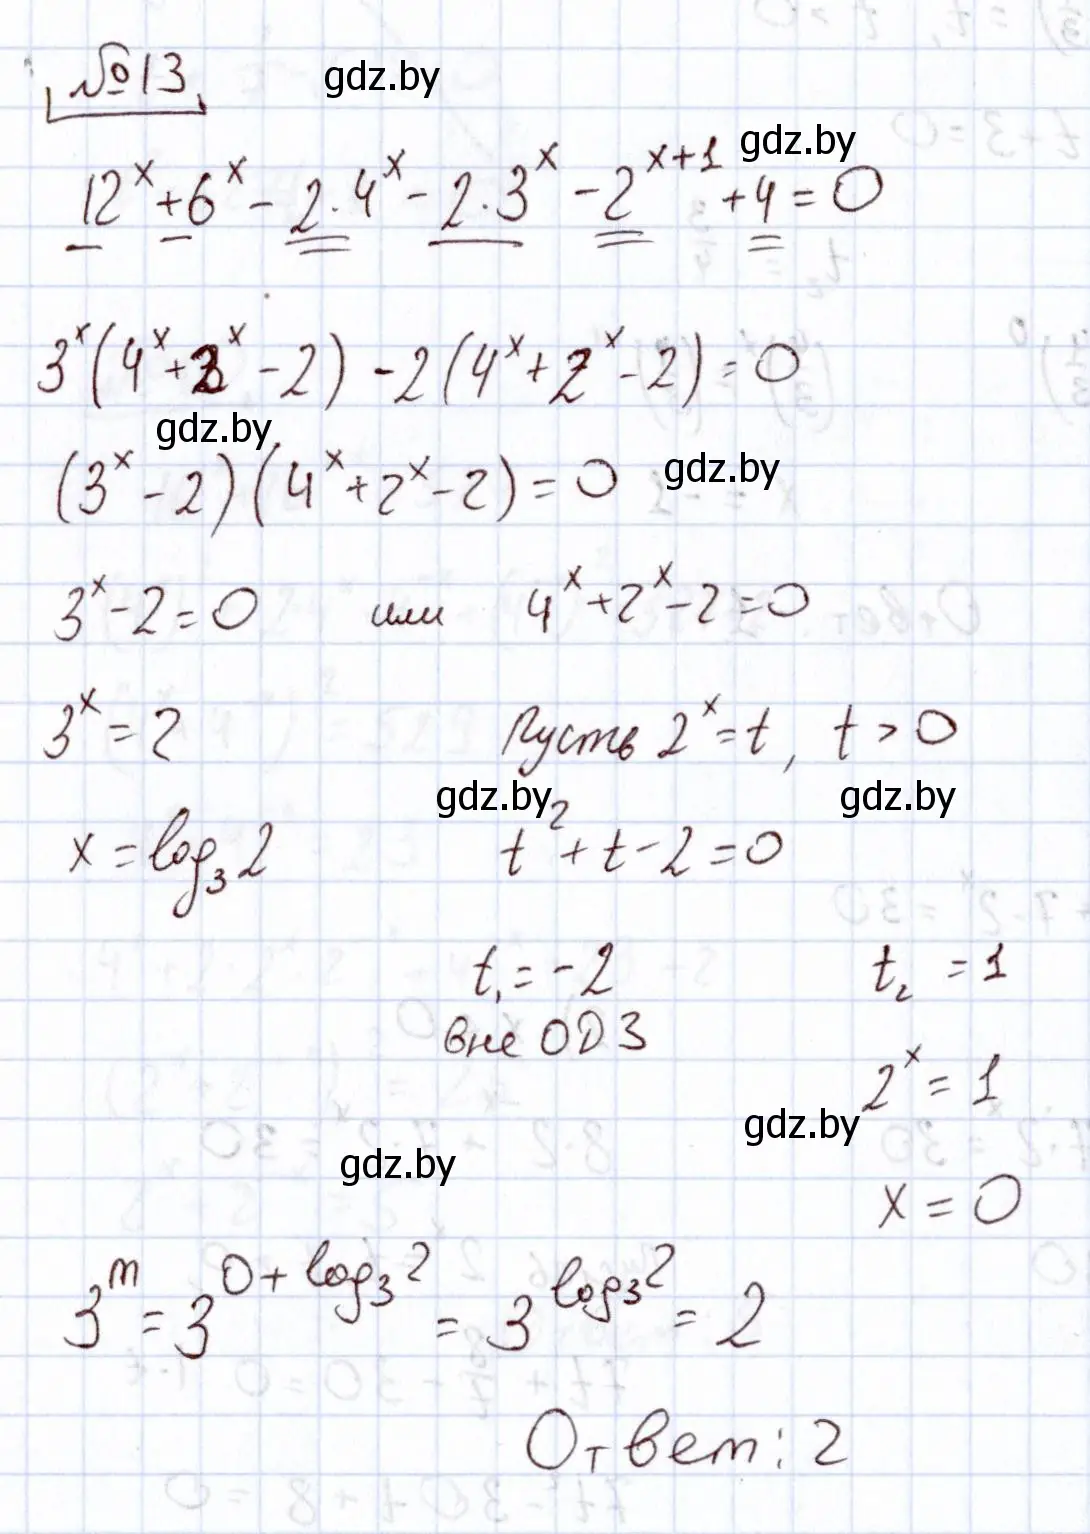 №13 gdz.by
gdz.by
12^x + 6^x - 2·4^x - 2·3^x - 2^{x+1} + 4 = 0
3^x(4^x + 2^x - 2) - 2(4^x + 2^x - 2) = 0
gdz.by
gdz.by
(3^x - 2)(4^x + 2^x - 2) = 0
3^x - 2 = 0 или 4^x + 2^x - 2 = 0
3^x = 2 Пусть 2^x = t, t > 0
gdz.by gdz.by
x = log_3 2 t^2 + t - 2 = 0
t_1 = -2 t_2 = 1
вне ОДЗ
2^x = 1
gdz.by
gdz.by
x = 0
3^m = 3^{0 + log_3 2} = 3^{log_3 2} = 2
Ответ: 2